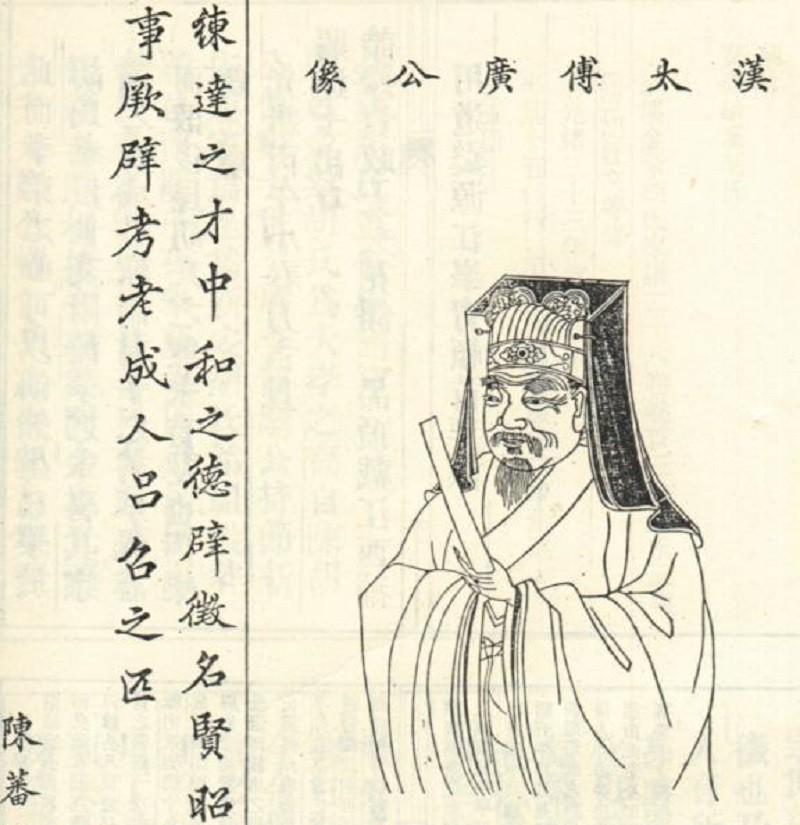 漢太傅廣公像
練達之才中和之德辟徵名賢昭
事厥辟考老成人呂召之匹
陳蕃